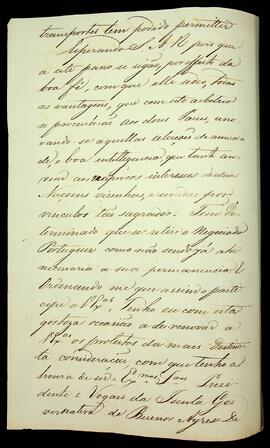 transportes tem podido permittir
Esperando S. A. R. pois que
a este passo se sigão, por effeito da
boa fé, com que elle he dado, todas
as vantagens, que com este arbitrio
se procurarão aos dous Paizes, reno
vando-se aquellas relações de amiza
de e boa intelligencia, que tanto con
vem aos reciprocos interesses de duas
Naçoens vizinhas, e unidas por
vinculos tão sagrados: Tem de
terminado que se retire o Negociador
Portuguez como não sendo já ahi
necessaria a sua permanencia. E
Ordenando me que assim o parti
cipe a V.Ex.as, Tenho eu com esta
gostoza occasião a de renovar a
V.Ex.as os protestos da mais distincta
consideração com que tenho a
honra de ser. Ex.mos S.nres Presi
dente e Vogaes da Junta Gov
vernativa de Buenos Ayres De